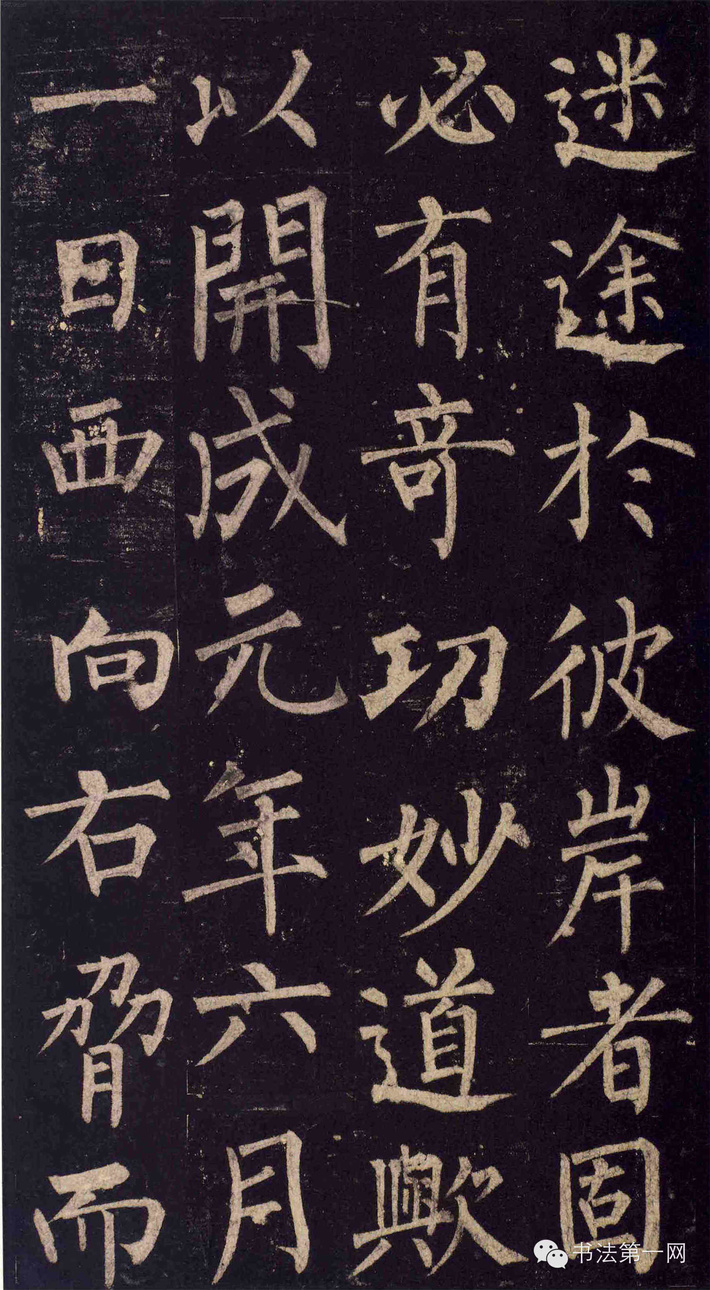 迷途於彼岸者固
必有竒功妙道歟
以開成元年六月
一日西向右脅而
书法第一网